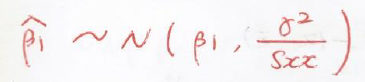 β̂1 ~ N ( β1 , σ² / Sxx )